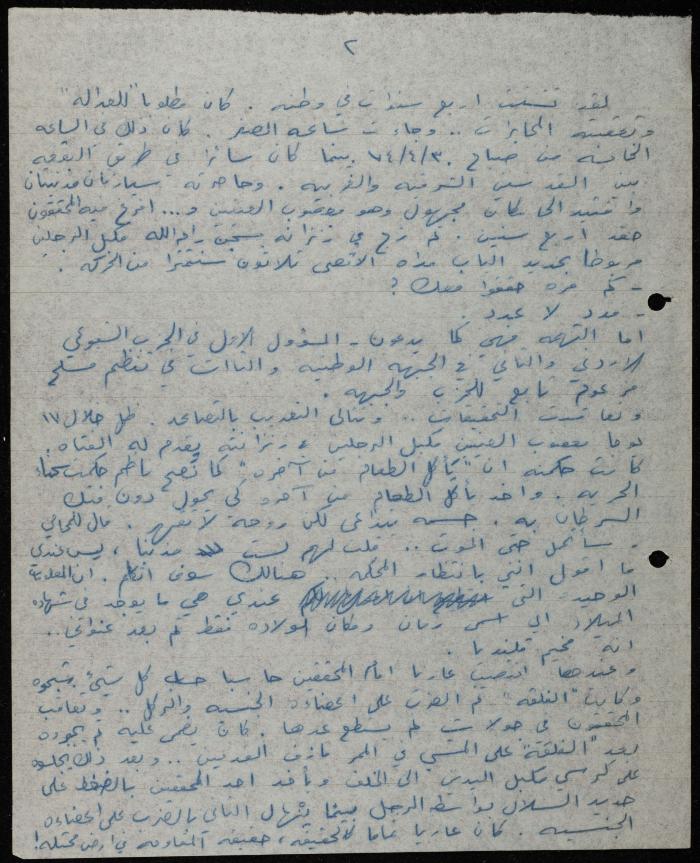 ٢
لقد تشتت اربع سنوات في وطنه . كان مطلوبا "للعداله"
وتعقبته المخابرات .. وجاءت ساعة الصفر . كان ذلك في الساعه
الخامسه من صباح ٧٤/٤/٣٠ بينما كان سائرا في طريق
بين القدس الشرقيه والغربيه . وحاصرته سيارتان مدنيتان
واقتيد الى مكان مجهول وهو معصوب العينين و... افرغ فيه المحققون
حقد اربع سنين . ثم زج في زنزانة بسجن رام الله مكبل الرجلين
مربوطا بحديد الباب مداه الاقصى ثلاثون سنتمترا من الحركه .
- كم مره حققوا معك ؟
- مدد لا عدد .
اما التهمه فهي كما يدعون - المسؤول الاول في الحزب الشيوعي
الاردني والثاني في الجبهه الوطنيه والثالث في تنظيم مسلح
مزعوم تابع للحزب والجبهه .
وتعاقبت التحقيقات .. وتوالى التعذيب بالتصاعد . ظل خلال ١٧
يوما معصوب العينين مكبل الرجلين في زنزانته يقدم له الفتات .
كانت حكمته ان "يأكل الطعام من آخره" كما نصح ناظم حكمت سجناء
الحريه . واخذ يأكل الطعام من آخره كي يحول دون فتك
السرطان به . جسمه يتداعى لكن روحه لا تقهر . قال للمحامي
- سأتحمل حتى الموت .. قلت لهم لست مذنبا ، ليس عندي
ما اقول انني بانتظار المحكمه .. هنالك سوف اتكلم . ان المعلومات
الوحيده التي عندي هي ما يوجد في شهادة
الميلاد اي اسمي وزمان ومكان الولاده فقط ثم بعد عنواني ..
انه مخيم قلنديا .
وعندها انتصبت عاريا امام المحققين حاسبا حساب كل شيء
وكانت "الفلقه" ثم الضرب على اعضاءه الجنسيه والركل .. وتعاقب
المحققون في جولات لم يستطع عدها . كان يغمى عليه ثم يجبروه
بعد "الفلقة" على المشي في الممر نازف القدمين .. وبعد ذلك يجلسوه
على كرسي مكبل اليدين الى الخلف ويأخذ احد المحققين بالضغط على
حديد السلاسل بواسطة الرجل بينما ينهال الثاني بالضرب على اعضاءه
الجنسيه . كان عاريا تماما كالحقيقه ، حقيقة المقاومه في ارض محتله !